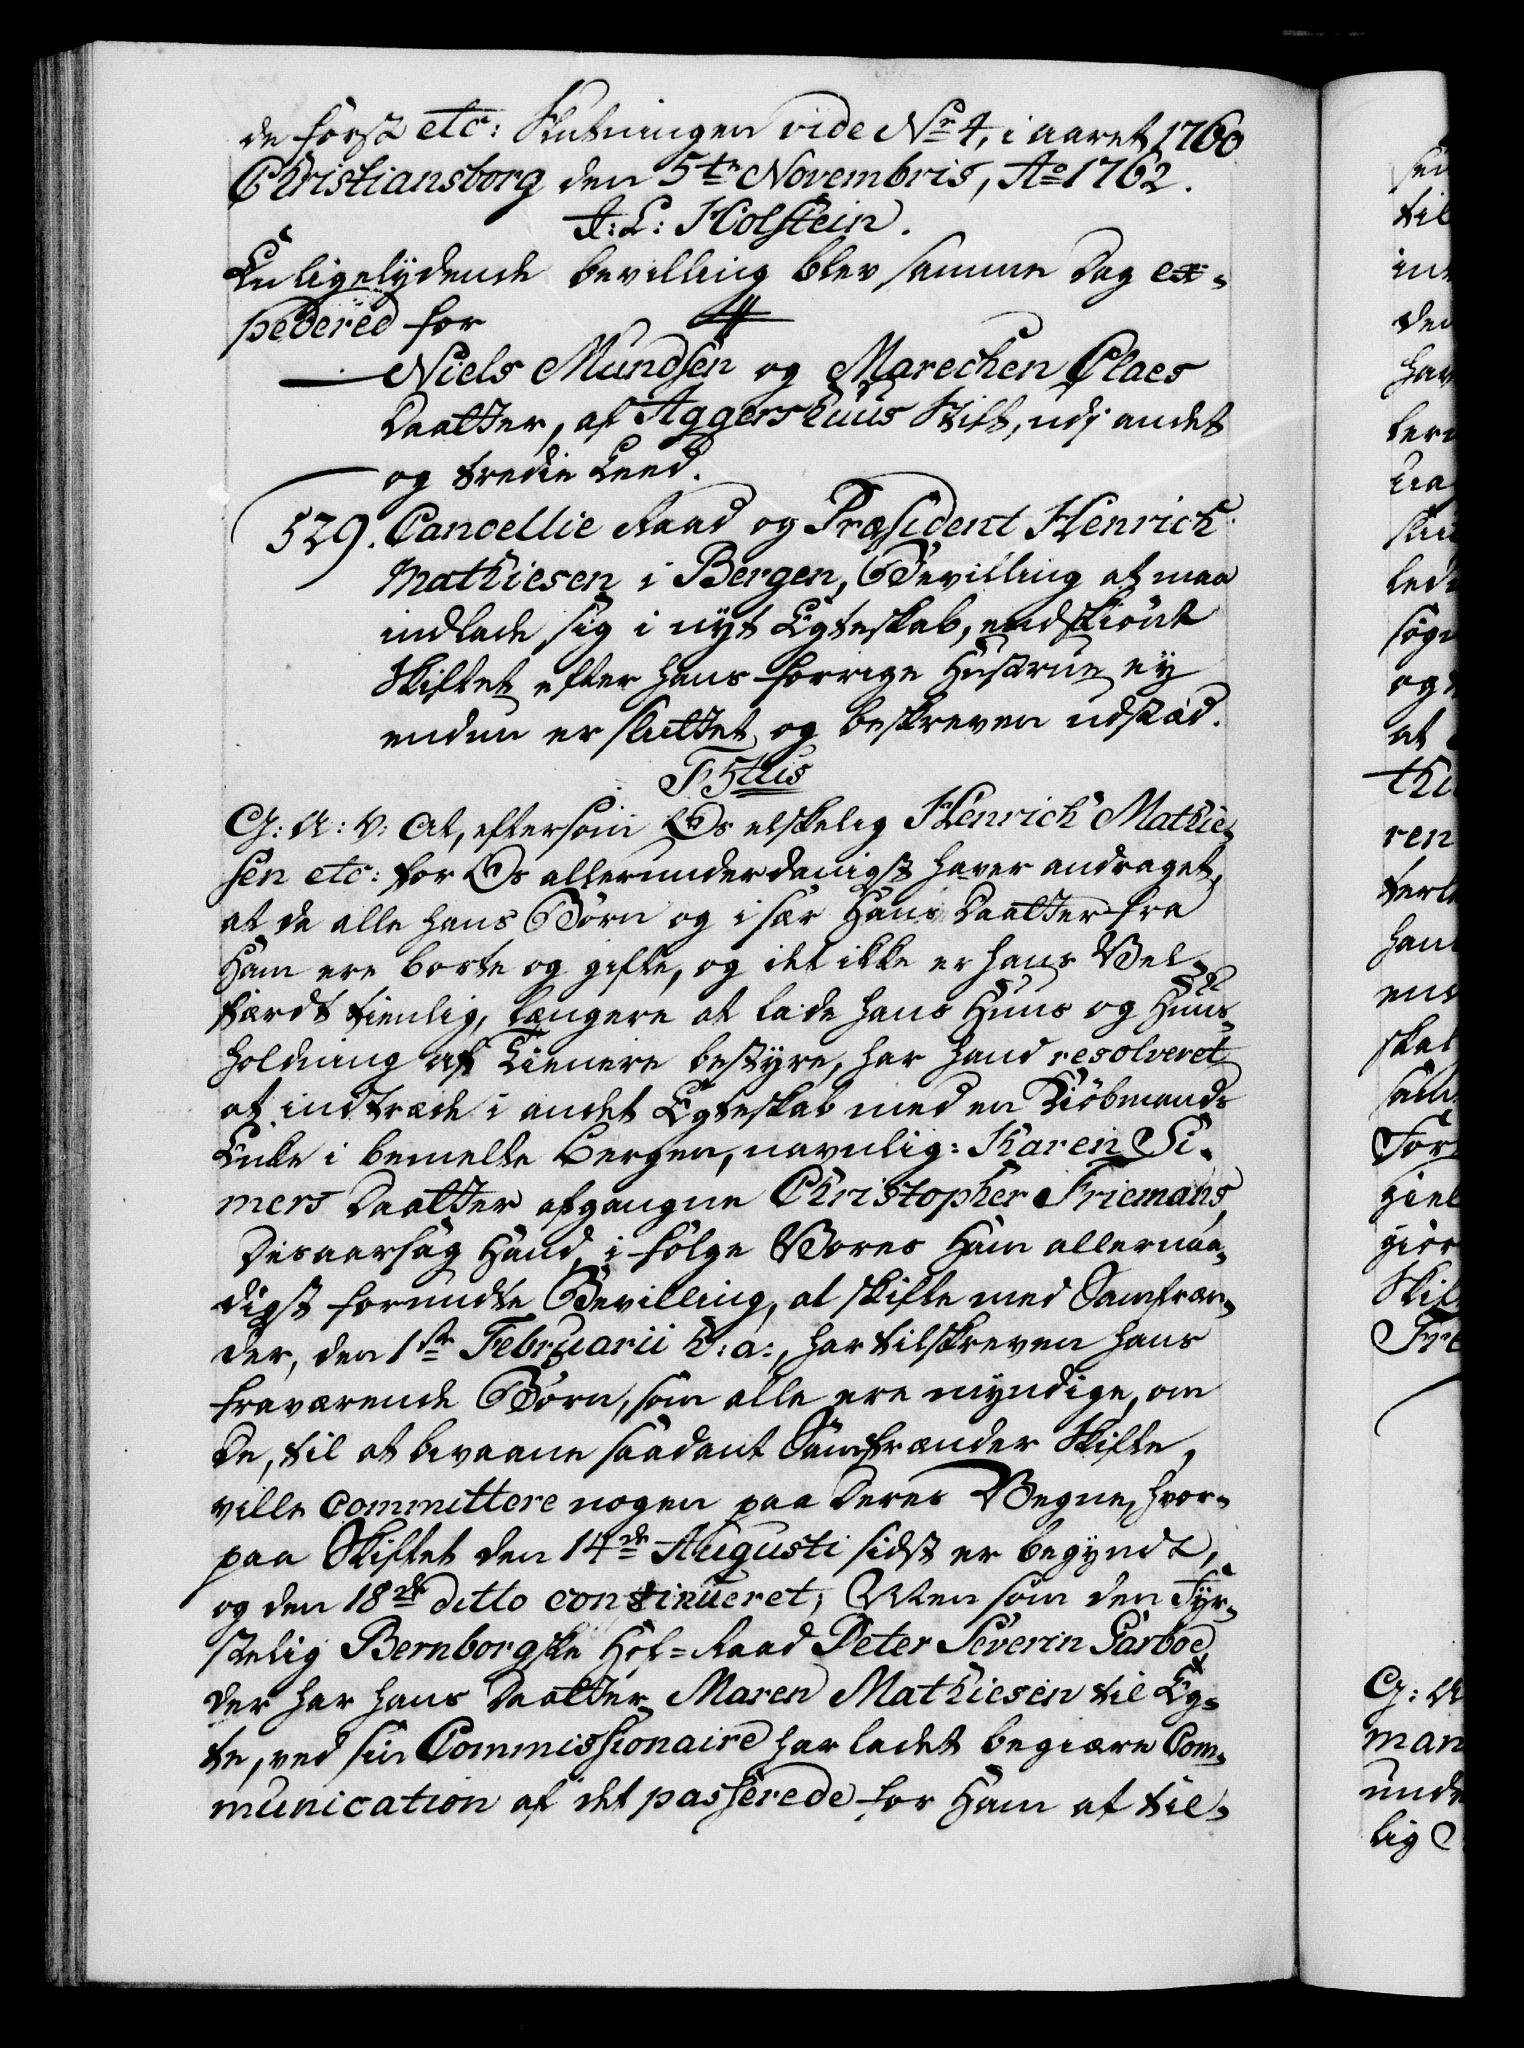 de først etc: Slutningen vide No 4, i aaret 1760
Christiansborg den 5te Novembris, Ao 1762.
J: L: Holstein.
En ligelydende bevilling blev samme Dag ex-
pedered for
Niels Mundsen og Marechen Claes
Daatter, af Aggershuus Stift, udj andet
og tredie Leed.
529. Cancellie Raad og Præsident Henrich
Mathiesen i Bergen, Bevilling at maa
indlade sig i nyt Egteskab, endskiønt
Skiftet efter hans forrige Hustrue ey
endnu er sluttet og beskreven udstæd.
F 5tus
G: A: V: At, eftersom Os elskelig Henrich Mathie-
sen etc: for Os allerunderdanigst haver andraget,
at da alle hans Børn og i sær Hans Daatter fra
Ham ere borte og gifte, og det ikke er hans Vel-
færdt tienlig, længere at lade hans Huus og Huus-
holdning af Tienere bestyre, har hand resolveret
at indtræde i andet Egteskab med en Kiøbmands
Enke i bemelte Bergen, navnlig: Karen Si-
mers Daatter afgangne Christopher Friemans,
Desaarsag Hand, i følge Vores Ham allernaa-
digst forundte Bevilling, at skifte med Samfræn-
der, den 1ste Februarii h: a:, har tilskreven hans
fraværende Børn, som alle ere myndige, om
De, til at bivaane saadant Samfrænder Skifte,
ville committere nogen paa Deres Vegne, hvor-
paa Skiftet den 14de Augusti sidst er begyndt,
og den 18de ditto continueret; Men som den Fyr-
stelig Bernborgske Hof-Raad Peter Severin Garboe,
der har hans Daatter Maren Mathiesen til Eg-
te, ved sin Commissionaire har ladet begiære Com-
munication af det passerede for Ham at til-